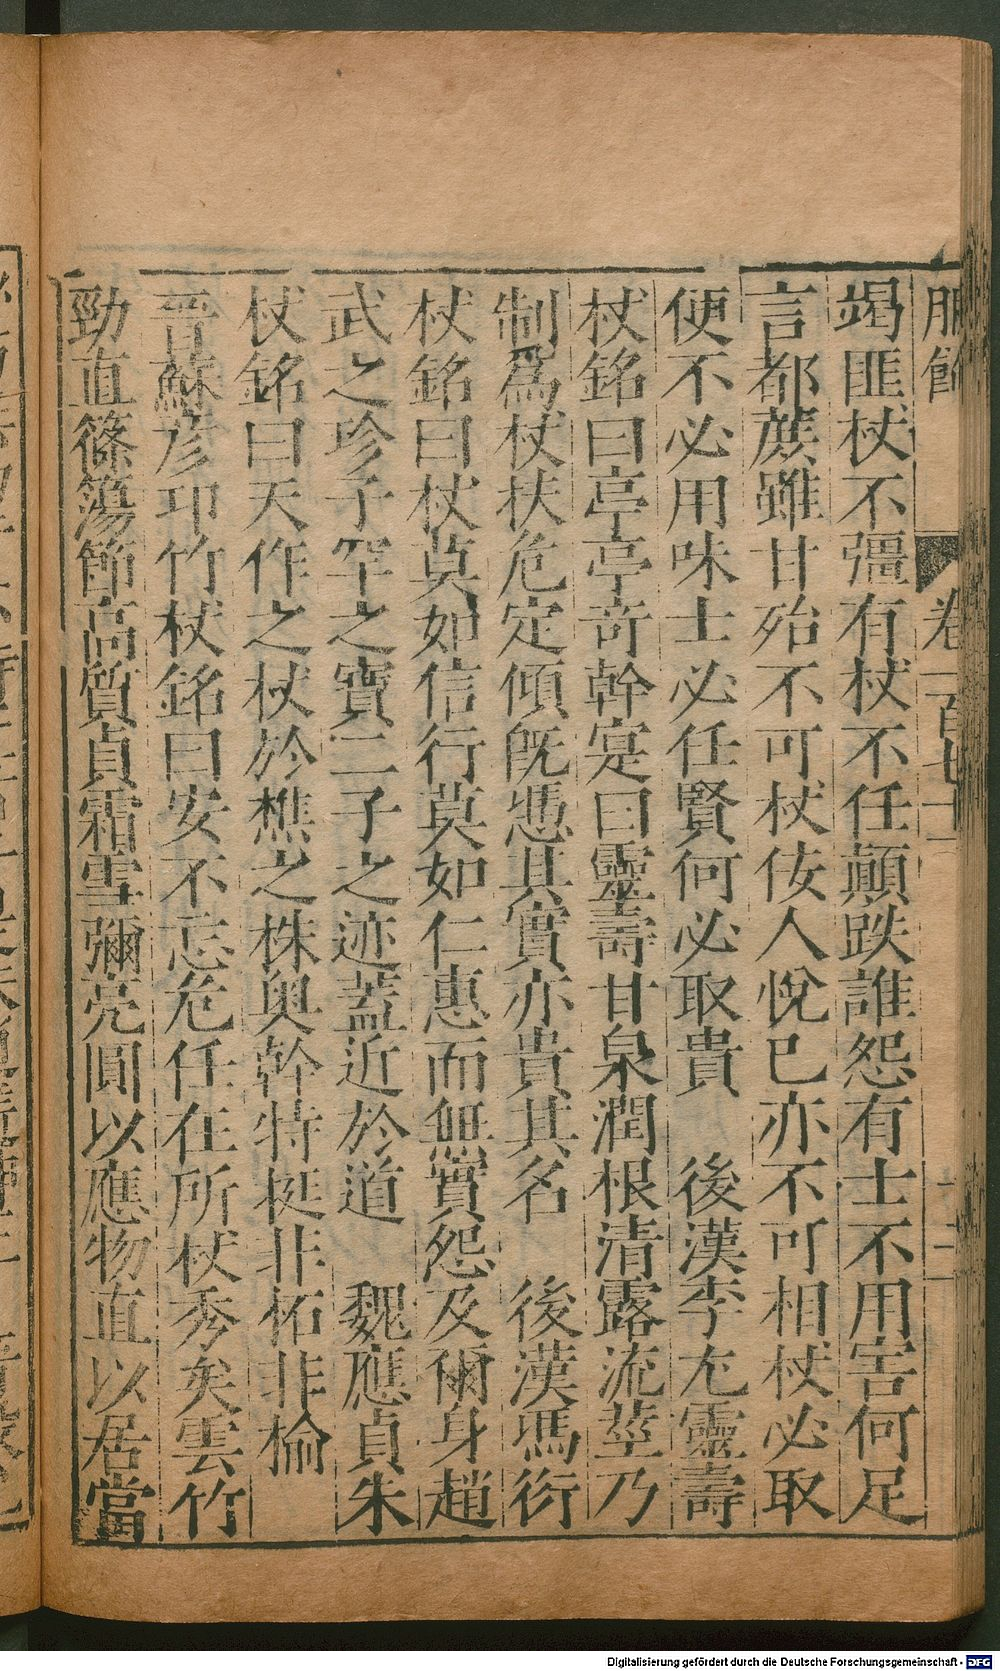 服飾 卷一百七十一
竭匪杖不彊有杖不任顛跌誰怨有士不用害何足
言都蔗雖甘殆不可杖佞人悅已亦不可相杖必取
便不必用味士必任賢何必取貴　後漢李尤靈壽
杖銘曰亭亭奇幹寔曰靈壽甘泉潤根清露流莖乃
制爲杖扶危定傾旣憑其實亦貴其名　後漢馮衍
杖銘曰杖莫如信行莫如仁惠而無實怨及爾身趙
武之珍子罕之寶二子之迹蓋近於道　魏應貞朱
杖銘曰天作之杖於樵之株奧幹特挺非柘非棆
晉蘇彥卭竹杖銘曰安不忘危任在所杖秀矣雲竹
勁直篠簜節高質貞霜雪彌亮圓以應物直以居當
Digitalisierung gefördert durch die Deutsche Forschungsgemeinschaft - DFG